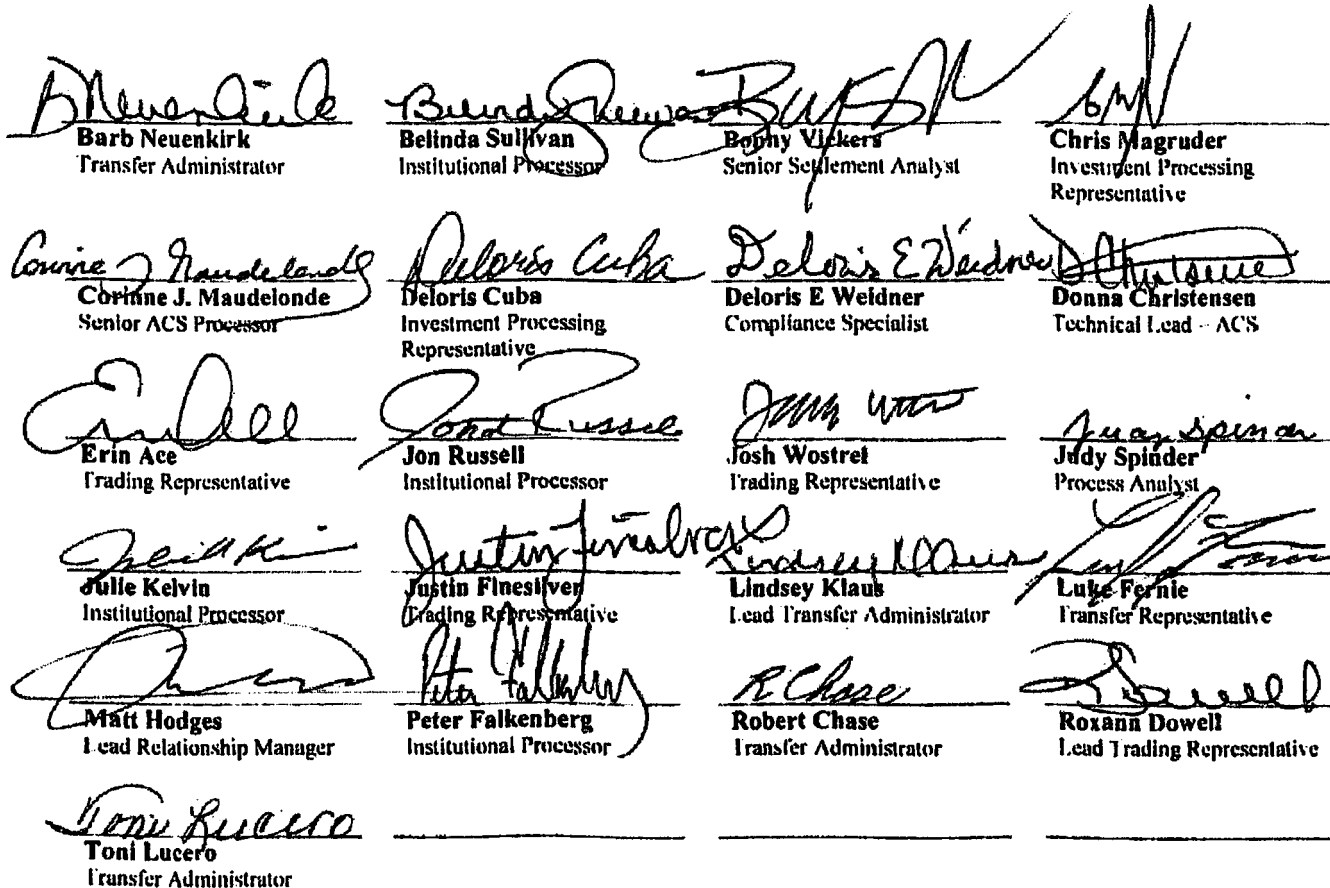 BNeuenkirk
Barb Neuenkirk
Transfer Administrator
Belinda Sullivan
Institutional Processor
Bonny Vickers
Senior Settlement Analyst
Chris Magruder
Investment Processing
Representative
Corinne J Maudelonde
Corinne J. Maudelonde
Senior ACS Processor
Deloris Cuba
Deloris Cuba
Investment Processing
Representative
Deloris E Weidner
Deloris E Weidner
Compliance Specialist
D Christensen
Donna Christensen
Technical Lead - ACS
Erin Ace
Trading Representative
Jon Russell
Jon Russell
Institutional Processor
Josh Wostrel
Trading Representative
Judy Spinder
Judy Spinder
Process Analyst
Julie Kelvin
Institutional Processor
Justin Finesilver
Justin Finesilver
Trading Representative
Lindsey Klaus
Lindsey Klaus
Lead Transfer Administrator
Luke Fernie
Transfer Representative
Matt Hodges
Lead Relationship Manager
Peter Falkenberg
Peter Falkenberg
Institutional Processor
R Chase
Robert Chase
Transfer Administrator
R Dowell
Roxann Dowell
Lead Trading Representative
Toni Lucero
Toni Lucero
Transfer Administrator